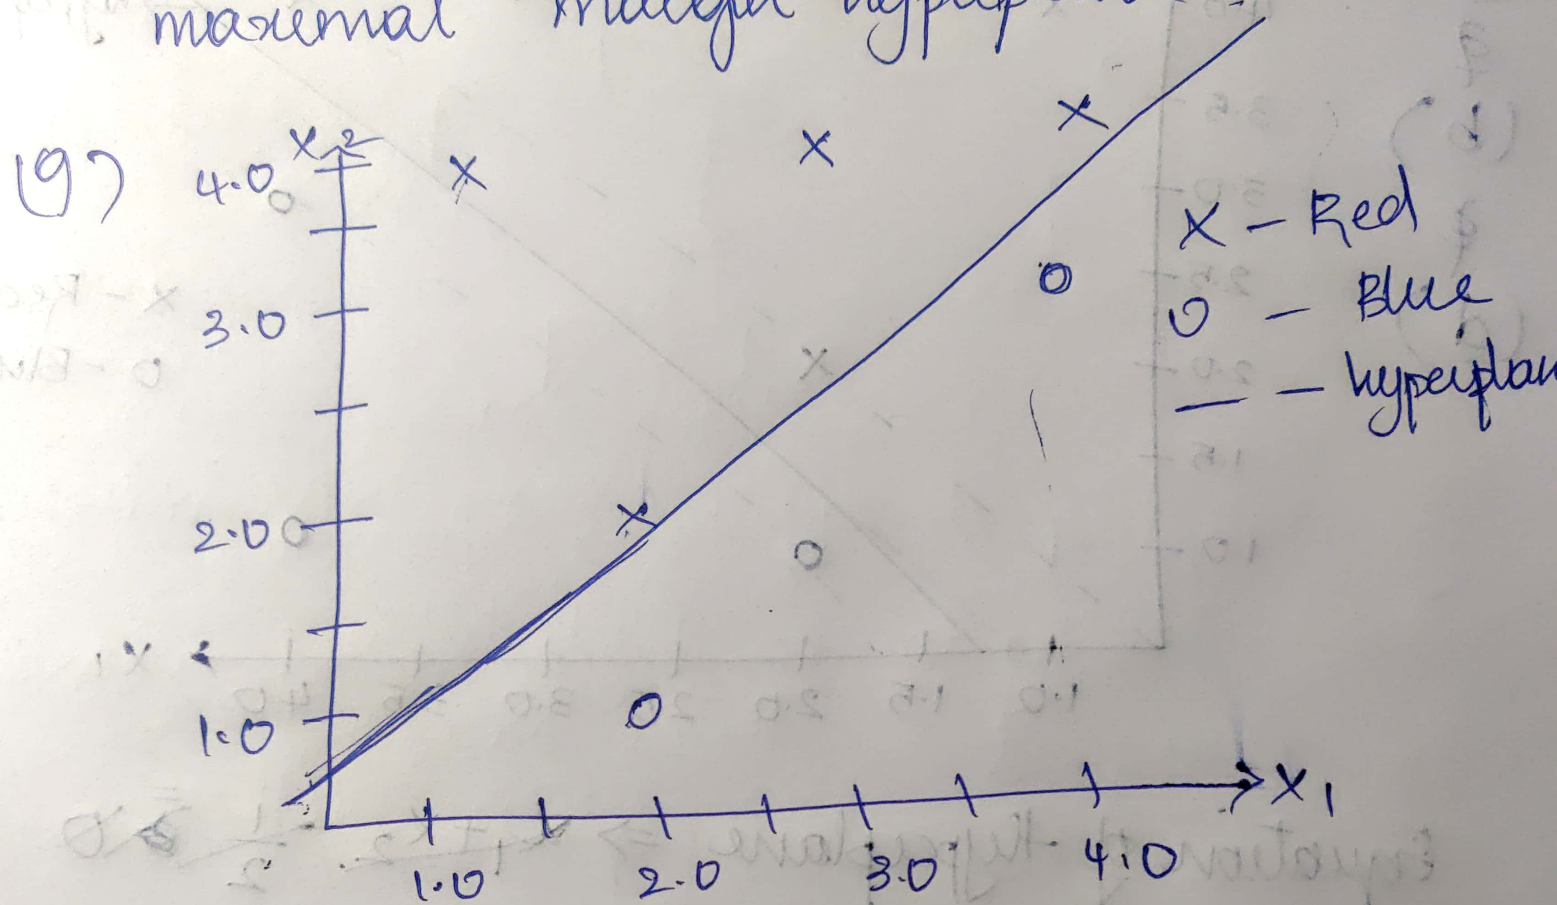 maximal margin
(g)
X2
4.0
3.0
2.0
1.0
1.0 2.0 3.0 4.0
X1
X - Red
O - Blue
— - hyperplan